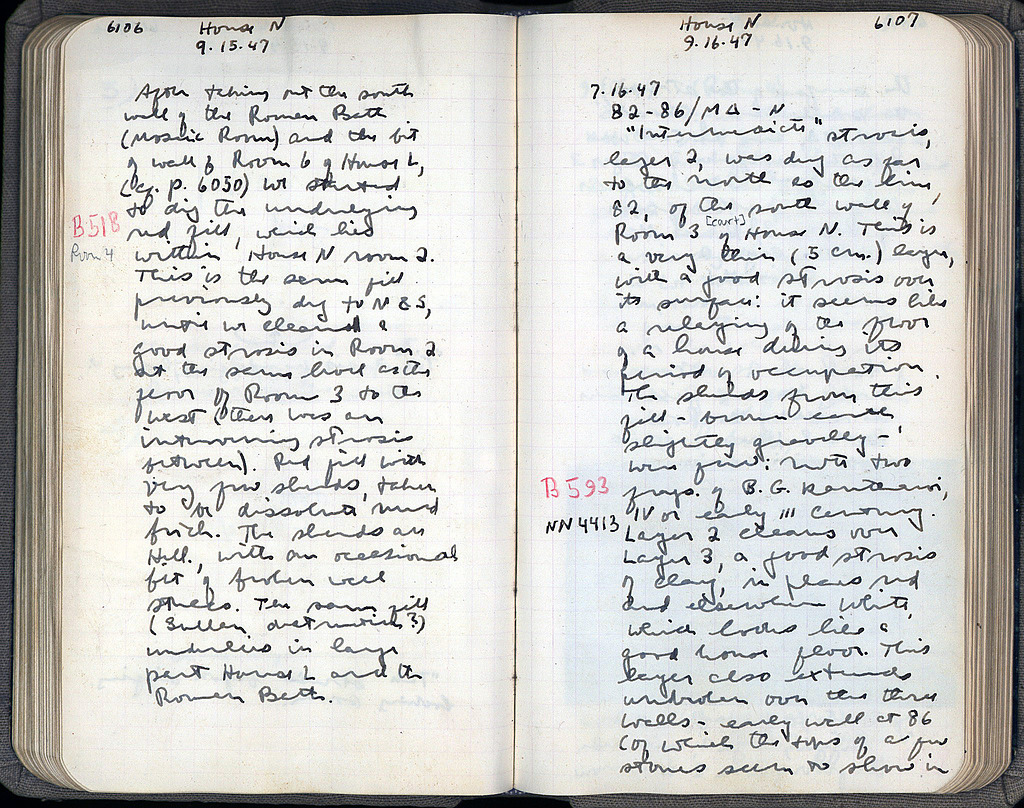 6106
House N
9.15.47
After taking out the south
wall of the Roman Bath
(Mosaic Room) and the bit
of wall of Room 6 of House L,
(cf. p. 6050) we started
to dig the underlying
B 518
red fill, which lies
Room 4
within House N room 2.
This is the same fill
previously dug to N & S,
until we cleaned a
good strosis in Room 2
at the same level as the
floor of Room 3 to the
west (there was an
intervening strosis
between). Red fill with
very few sherds, taken
to be dissolved mud
brick. The sherds are
Hell., with an occasional
bit of broken wall
stucco. The same fill
(Sullan destruction?)
underlies in large
part House L and the
Roman Bath.
6107
House N
9.16.47
9.16.47
82-86/ΜΔ - Ν
"Intermediate" strosis,
layer 2, was dug as far
to the north as the line,
82, of the south wall of
Room 3 [court] of House N. This is
a very thin (5 cm.) layer,
with a good strosis over
its surface: it seems like
a relaying of the floor
of a house during its
period of occupation.
The sherds from this
fill - brown earth
slightly gravelly -
B 593
were few: note two
frags. of B.G. kantharoi,
NN 4413
IV or early III century.
Layer 2 cleans over
Layer 3, a good strosis
of clay, in places red
and elsewhere white,
which looks like a
good house floor. This
layer also extends
unbroken over the three
walls - early wall at 86
(of which the tops of a few
stones seem to show in